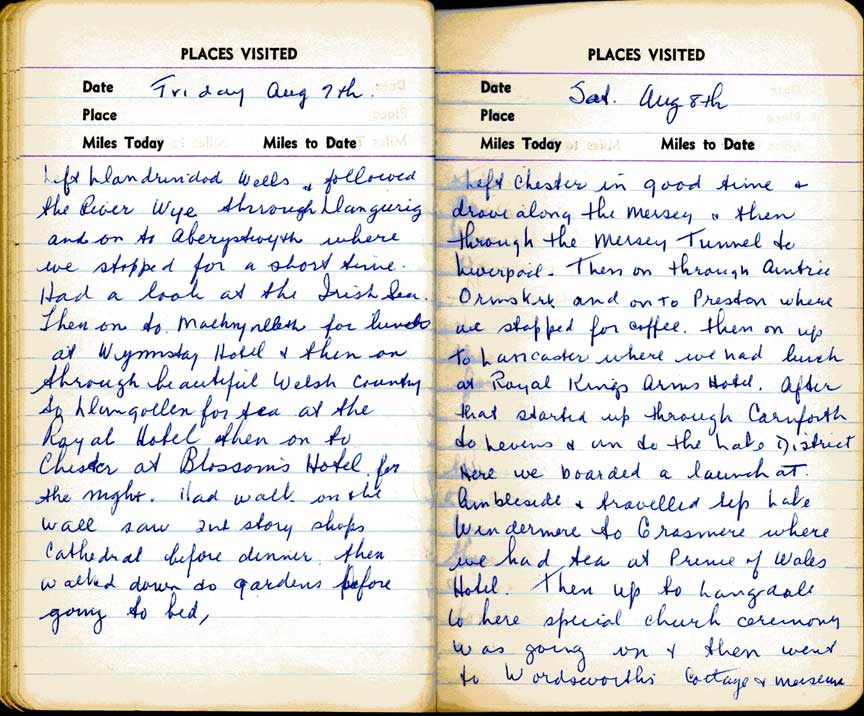 PLACES VISITED
Date Friday Aug 7th.
Place
Miles Today Miles to Date
Left Llandrindod Wells & followed
the River Wye through Llangurig
and on to Aberystwyth where
we stopped for a short time.
Had a look at the Irish Sea.
Then on to Machynlleth for lunch
at Wynnstay Hotel & then on
through beautiful Welsh Country
to Llangollen for tea at the
Royal Hotel then on to
Chester at Blossoms Hotel for
the night. Had walk on the
wall saw 2nd story shops
Cathedral before dinner then
walked down to gardens before
going to bed,
PLACES VISITED
Date Sat. Aug 8th
Place
Miles Today Miles to Date
Left Chester in good time &
drove along the Mersey & then
through the Mersey Tunnel to
Liverpool. Then on through Aintree
Ormskirk and on to Preston where
we stopped for coffee. Then on up
to Lancaster where we had lunch
at Royal Kings Arms Hotel. After
that started up through Carnforth
to Levens & on to the Lake District
Here we boarded a launch at
Ambleside & travelled up Lake
Windermere to Grasmere where
we had tea at Prince of Wales
Hotel. Then up to Langdale
where special church ceremony
was going on & then went
to Wordsworth's Cottage & museum